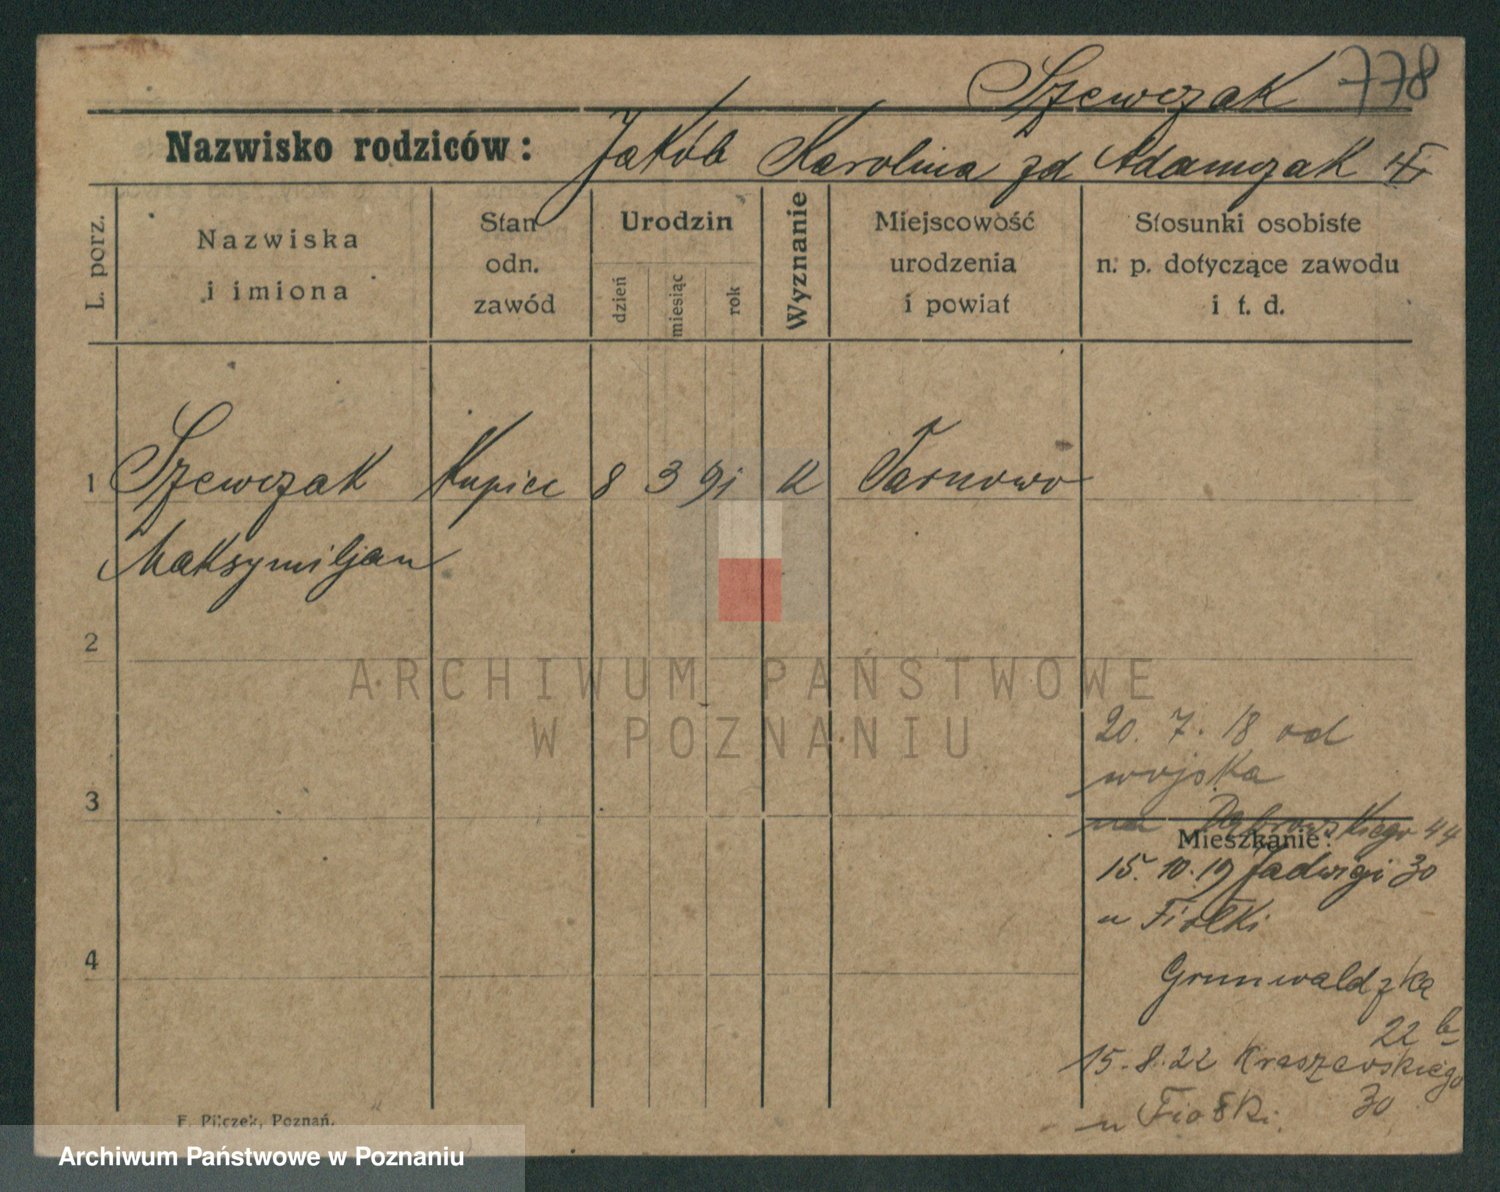 Szewczak 778
Nazwisko rodziców: Jakób Karolina zd Adamczak
L. porz.
Nazwiska
i imiona
Stan
odn.
zawód
Urodzin
dzień
miesiąc
rok
Wyznanie
Miejscowość
urodzenia
i powiat
Stosunki osobiste
n. p. dotyczące zawodu
i t. d.
1 Szewczak Kupiec 8 3 91 K Tarnowo
Maksymiljan
2
3
4
20. 7. 18 od
wojska
na Dąbrowskiego 44
Mieszkanie:
15. 10. 19 Jadwigi 30
u Fiołki
Grunwaldzka
22 b
15. 8. 22 Kraszewskiego
u Fiołki. 30
F. Pilczek, Poznań.
ARCHIWUM PAŃSTWOWE
W POZNANIU
Archiwum Państwowe w Poznaniu